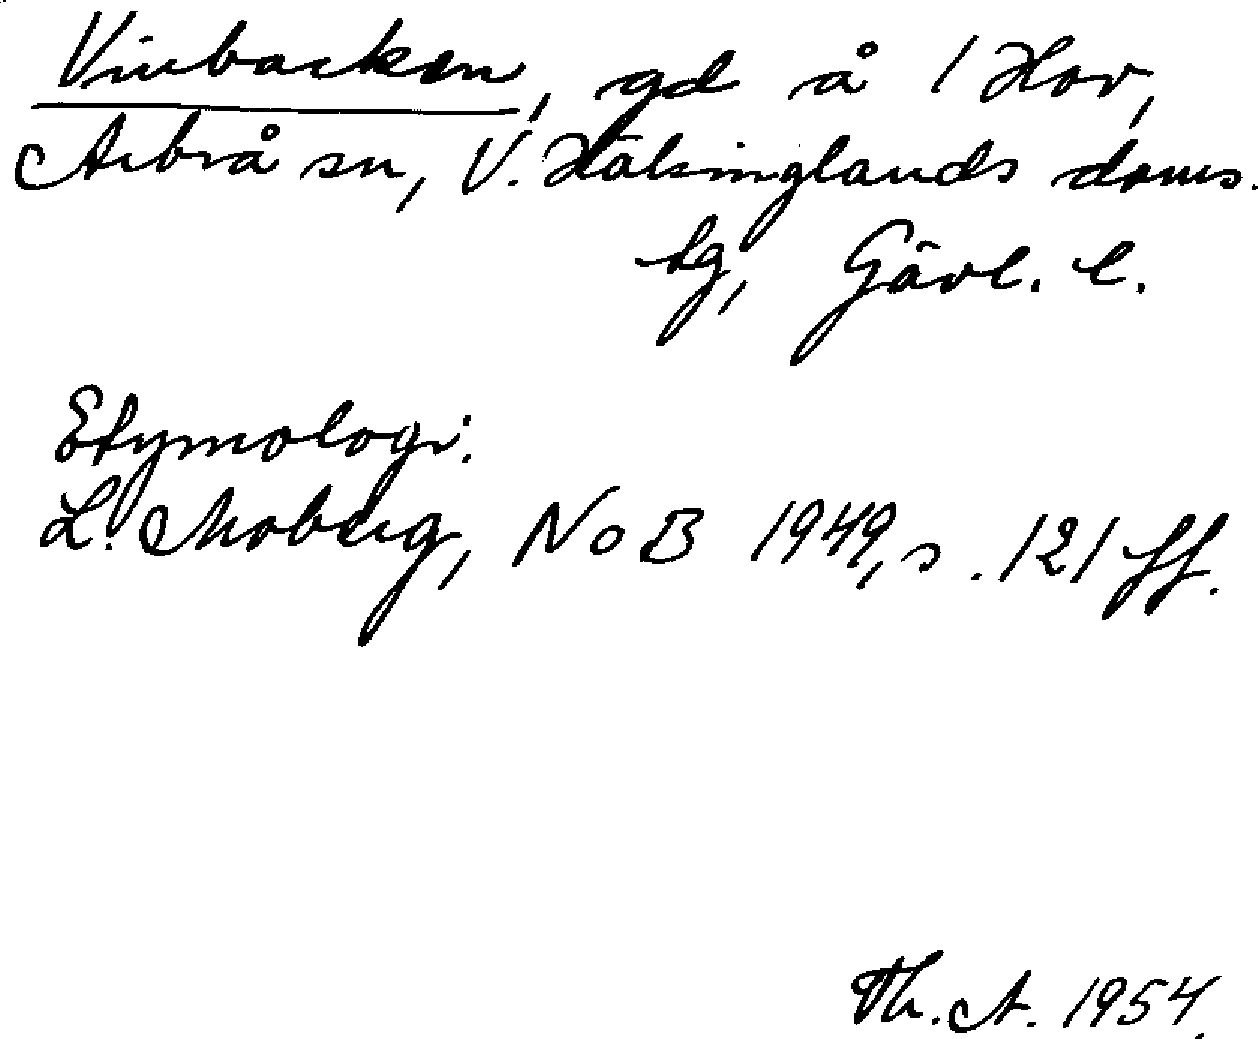 Vinbacken, gd å 1 Hov,
Arbrå sn, V. Hälsinglands doms.
hg, Gävl. l.
Etymologi:
L. Moberg, NoB 1949, s. 121 ff.
Th. A. 1954.